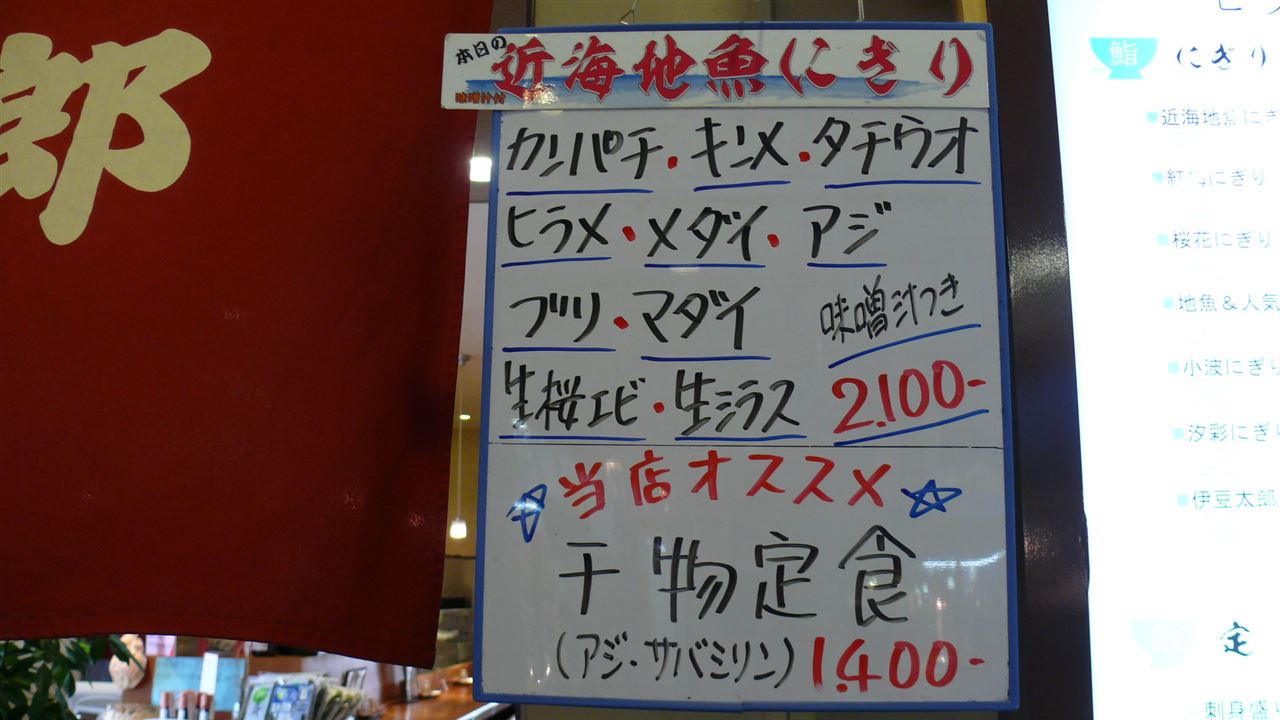 郎
本日の
近海地魚にぎり
味噌汁付
カンパチ・キンメ・タチウオ
ヒラメ・メダイ・アジ
ブリ・マダイ 味噌汁つき
生桜エビ・生シラス 2.100-
当店オススメ
干物定食
(アジ・サバミリン) 1.400-
鮨 にぎり
近海地魚にぎ
紅梅にぎり
桜花にぎり
地魚&人気
小波にぎり
汐彩にぎり
伊豆太郎
定
刺身盛り